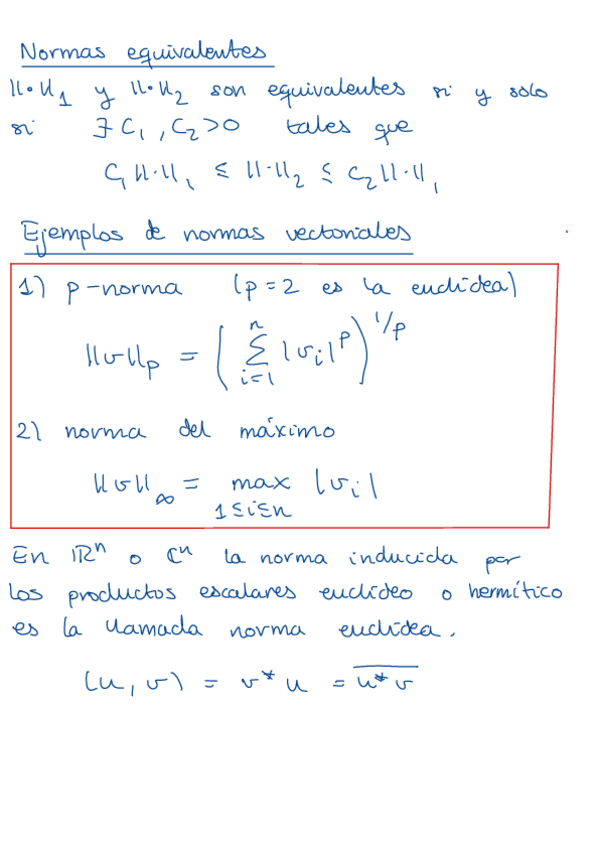 Normas equivalentes
||·||₁ y ||·||₂ son equivalentes si y solo
si ∃ C₁, C₂ > 0 tales que
C₁ ||·||₁ ≤ ||·||₂ ≤ C₂ ||·||₁
Ejemplos de normas vectoriales
1) p-norma (p = 2 es la euclídea)
||v||ₚ = ( ∑ᵢ₌₁ⁿ |vᵢ|ᵖ )^(1/p)
2) norma del máximo
||v||∞ = max |vᵢ|
1≤i≤n
En ℝⁿ o ℂⁿ la norma inducida por
los productos escalares euclídeo o hermítico
es la llamada norma euclídea.
(u, v) = v* u = \overline{u* v}